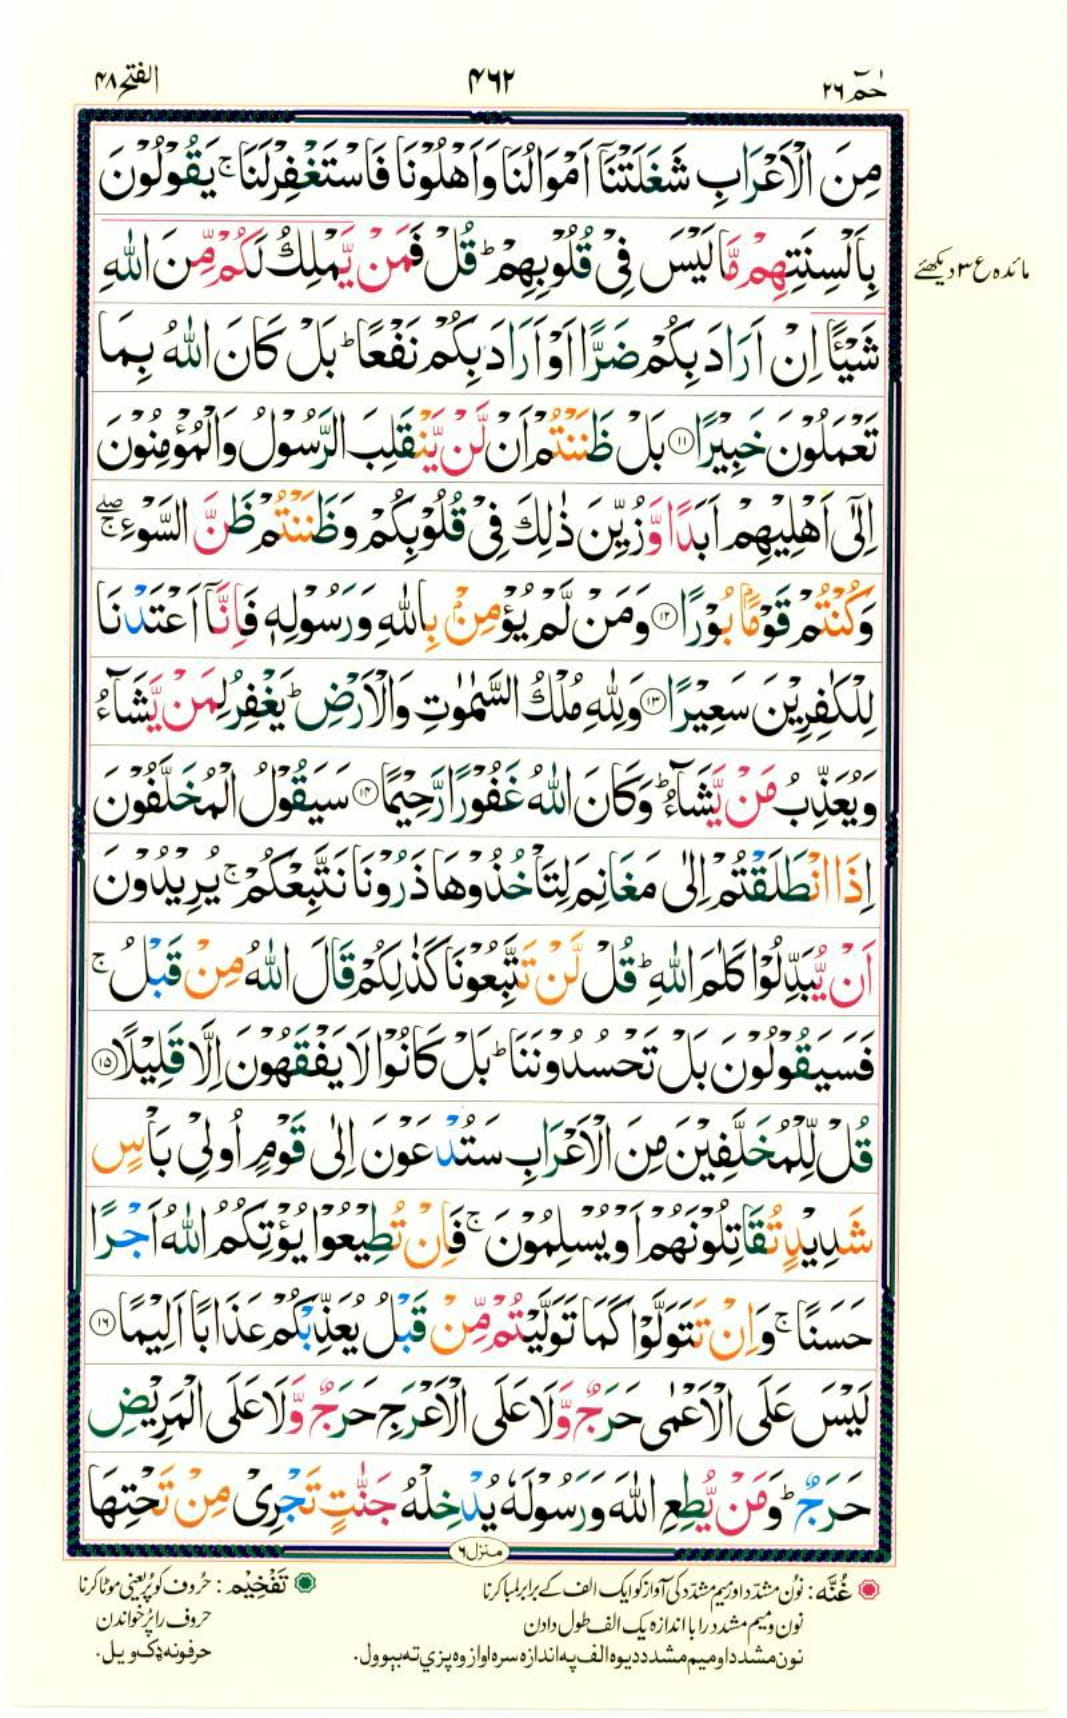 حٰمٓ ٢٦ ۴۶۲ الفتح ۴۸
مِنَ الْاَعْرَابِ شَغَلَتْنَاۤ اَمْوَالُنَا وَاَهْلُوْنَا فَاسْتَغْفِرْ لَنَا ۚ يَقُوْلُوْنَ
بِاَلْسِنَتِهِمْ مَّا لَيْسَ فِيْ قُلُوْبِهِمْ ؕ قُلْ فَمَنْ يَّمْلِكُ لَكُمْ مِّنَ اللّٰهِ
مائدہ ع ۳ دیکھئے
شَيْـًٔا اِنْ اَرَادَ بِكُمْ ضَرًّا اَوْ اَرَادَ بِكُمْ نَفْعًا ؕ بَلْ كَانَ اللّٰهُ بِمَا
تَعْمَلُوْنَ خَبِيْرًا ⑪ بَلْ ظَنَنْتُمْ اَنْ لَّنْ يَّنْقَلِبَ الرَّسُوْلُ وَالْمُؤْمِنُوْنَ
اِلٰۤى اَهْلِيْهِمْ اَبَدًا وَّزُيِّنَ ذٰلِكَ فِيْ قُلُوْبِكُمْ وَظَنَنْتُمْ ظَنَّ السَّوْءِ ۖۚ
وَكُنْتُمْ قَوْمًاۢ بُوْرًا ⑫ وَمَنْ لَّمْ يُؤْمِنْۢ بِاللّٰهِ وَرَسُوْلِهٖ فَاِنَّاۤ اَعْتَدْنَا
لِلْكٰفِرِيْنَ سَعِيْرًا ⑬ وَلِلّٰهِ مُلْكُ السَّمٰوٰتِ وَالْاَرْضِ ؕ يَغْفِرُ لِمَنْ يَّشَآءُ
وَيُعَذِّبُ مَنْ يَّشَآءُ ؕ وَكَانَ اللّٰهُ غَفُوْرًا رَّحِيْمًا ⑭ سَيَقُوْلُ الْمُخَلَّفُوْنَ
اِذَا انْطَلَقْتُمْ اِلٰى مَغَانِمَ لِتَاْخُذُوْهَا ذَرُوْنَا نَتَّبِعْكُمْ ۚ يُرِيْدُوْنَ
اَنْ يُّبَدِّلُوْا كَلٰمَ اللّٰهِ ؕ قُلْ لَّنْ تَتَّبِعُوْنَا كَذٰلِكُمْ قَالَ اللّٰهُ مِنْ قَبْلُ ۚ
فَسَيَقُوْلُوْنَ بَلْ تَحْسُدُوْنَنَا ؕ بَلْ كَانُوْا لَا يَفْقَهُوْنَ اِلَّا قَلِيْلًا ⑮
قُلْ لِّلْمُخَلَّفِيْنَ مِنَ الْاَعْرَابِ سَتُدْعَوْنَ اِلٰى قَوْمٍ اُولِيْ بَاْسٍ
شَدِيْدٍ تُقَاتِلُوْنَهُمْ اَوْ يُسْلِمُوْنَ ۚ فَاِنْ تُطِيْعُوْا يُؤْتِكُمُ اللّٰهُ اَجْرًا
حَسَنًا ۚ وَاِنْ تَتَوَلَّوْا كَمَا تَوَلَّيْتُمْ مِّنْ قَبْلُ يُعَذِّبْكُمْ عَذَابًا اَلِيْمًا ⑯
لَيْسَ عَلَى الْاَعْمٰى حَرَجٌ وَّلَا عَلَى الْاَعْرَجِ حَرَجٌ وَّلَا عَلَى الْمَرِيْضِ
حَرَجٌ ؕ وَمَنْ يُّطِعِ اللّٰهَ وَرَسُوْلَهٗ يُدْخِلْهُ جَنّٰتٍ تَجْرِيْ مِنْ تَحْتِهَا
منزل ۶
غُنَّه : نُون مشدّد اور میم مشدّد کی آواز کو ایک الف کے برابر لمبا کرنا
نون و میم مشدد را با اندازہ یک الف طول دادن
نون مشدد او میم مشدد د یوه الف په اندازه سره اواز وه پزي ته بېوول.
تَفْخِيْم : حُروف کو پُر یعنی موٹا کرنا
حروف را پُر خواندن
حرفونه ډک ویل.